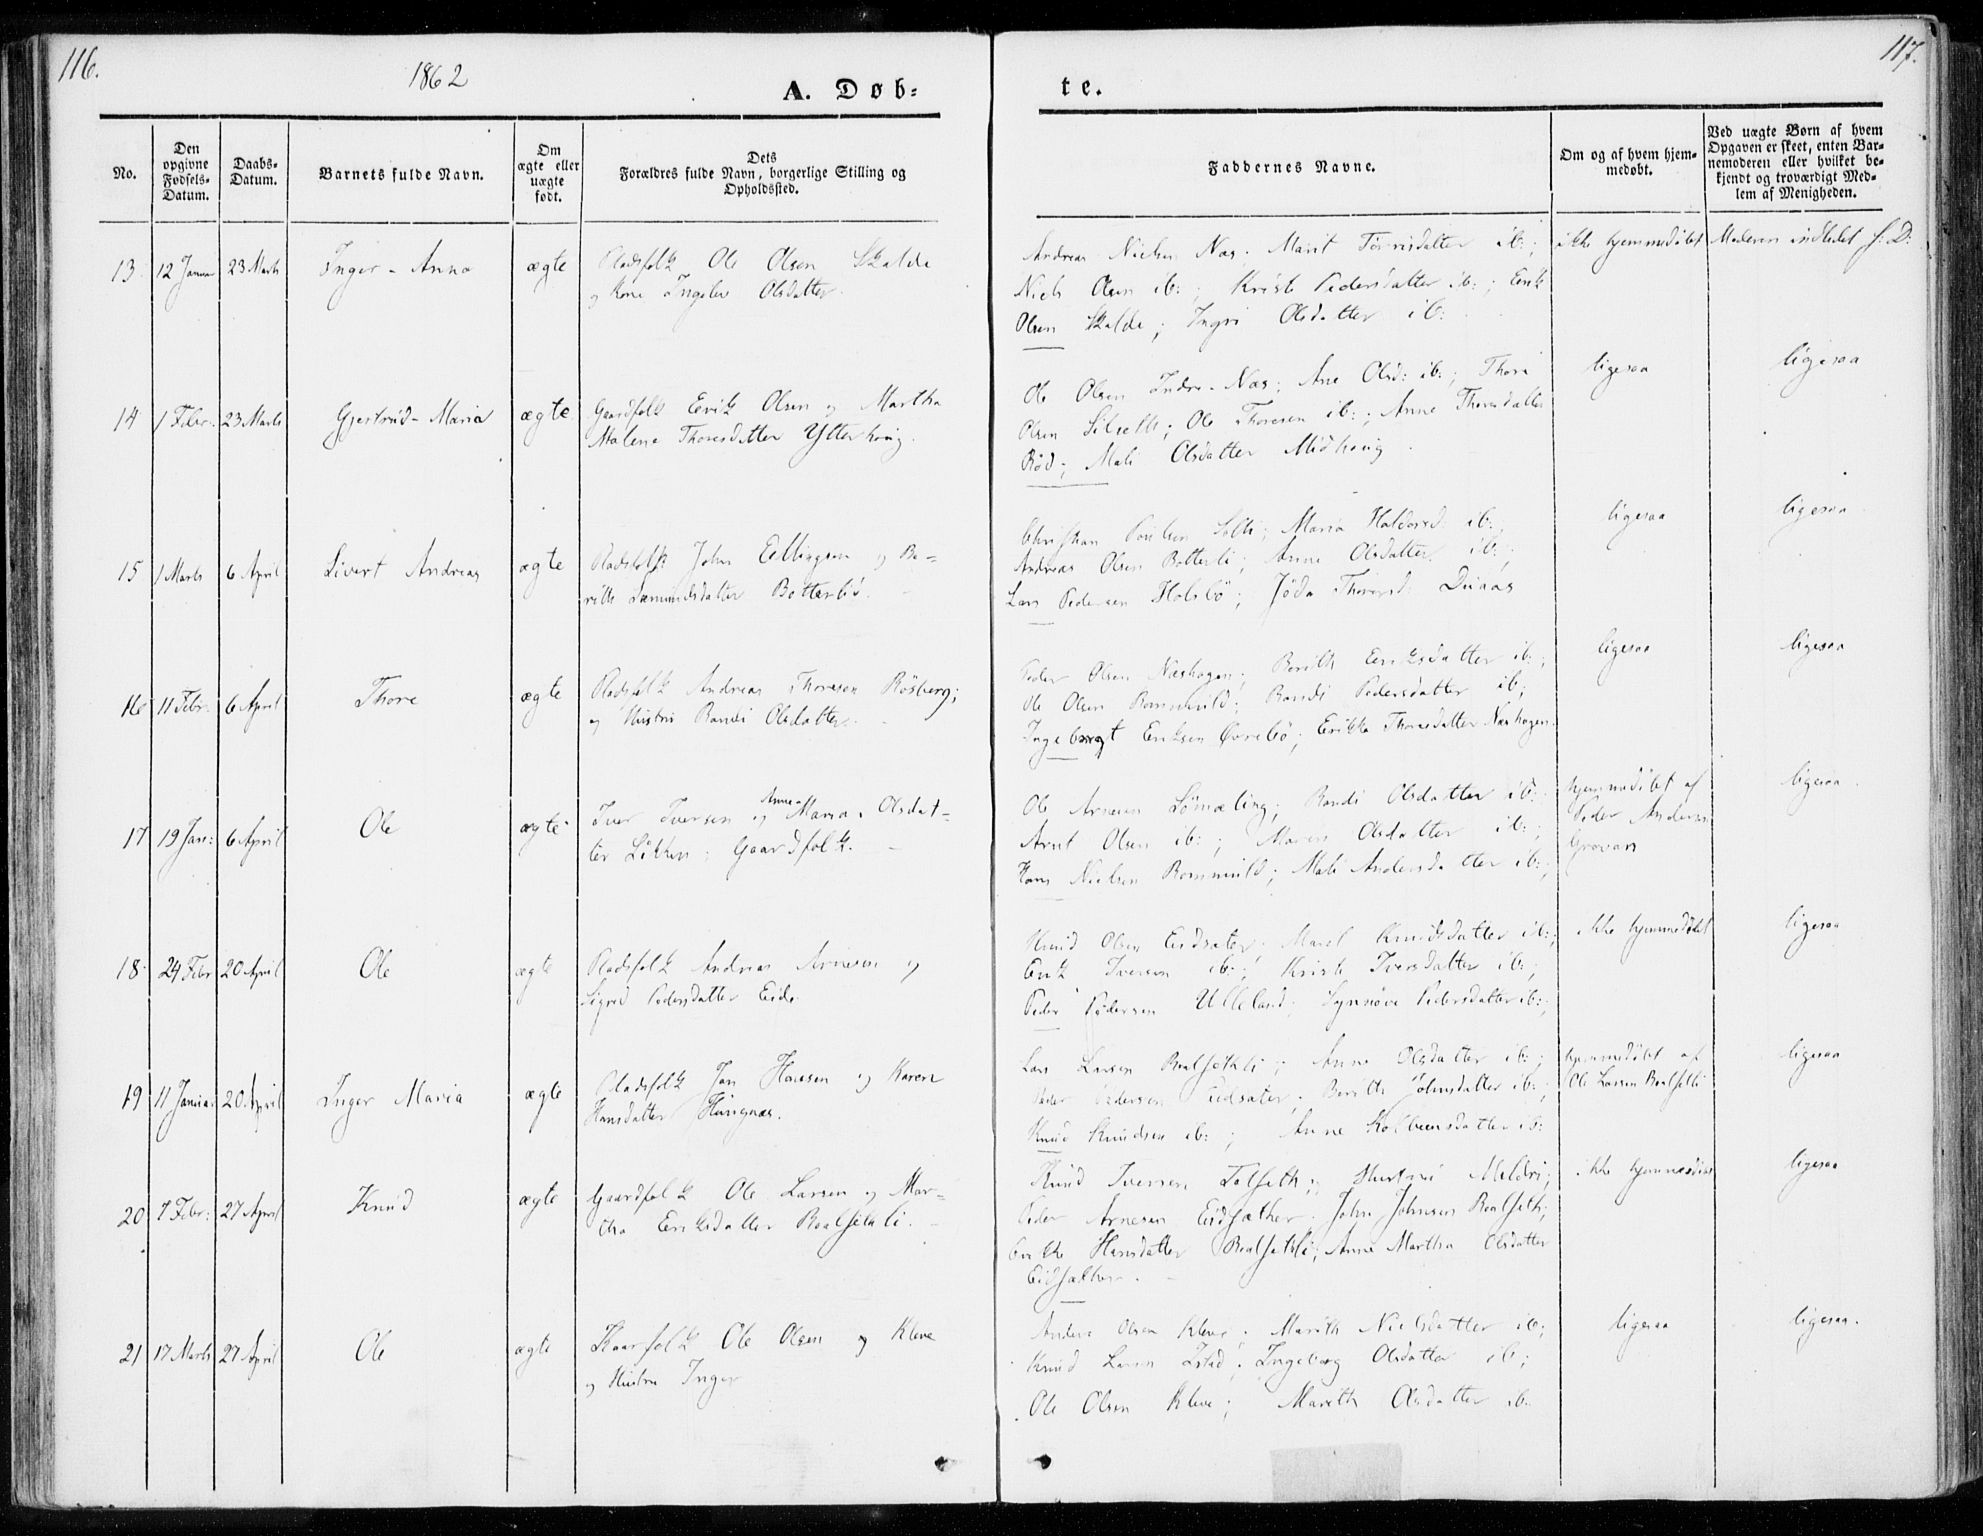 116.
1862
A. Døb=
te.
117.
No.
Den opgivne Fødsels-Datum.
Daabs-Datum.
Barnets fulde Navn.
Om ægte eller uægte født.
Dets Forældres fulde Navn, borgerlige Stilling og Opholdssted.
Faddernes Navne.
Om og af hvem hjemmedøbt.
Ved uægte Børn af hvem Opgaven er skeet, enten Barnemoderen eller hvilket bekjendt og troværdigt Medlem af Menigheden.
13 12 Januar 23 Marts Inger-Anna ægte Pladsfolk Ole Olsen Skalde
og Kone Ingeler Olsdatter.
Andreas Nielsen Næs. Marit Tørrisdatter ib:;
Niels Olsen ib:; Kristi Pedersdatter ib:; Erik
Olsen Skalde; Ingri Olsdatter ib:
ikke hjemmedøbt
Moderen indledet s: D:
14 1 Febr: 23 Marts Gjertrud-Maria ægte Gaardfolk Eerik Olsen og Martha
Malene Thoresdatter Ytterhoug.
Ole Olsen Indre-Næs; Ane Olsd: ib:; Thore
Olsen Silseth; Ole Thoresen ib:; Anne Thoresdatter
Rød; Mali Olsdatter Midhoug
ligesaa
ligesaa
15 1 Marts 6 April Sivert Andreas ægte Pladsfolk John Ellingsen og Be-
rith Sæmundsdatter Botterlid.
Christian Poulsen; Maria Haldorsd: ib:
Andreas Olsen Botterli; Anne Olsdatter ib:;
Lars Pedersen Holsbø; Jøda Thoresd:
ligesaa
ligesaa
16 11 Febr: 6 April Thore ægte Pladsfolk Andreas Thoresen Røsberg;
og Hustru Randi Olsdatter.
Peder Olsen Næshagen; Berith Eriksdatter ib:;
Ole Olsen Rommuld; Randi Pedersdatter ib;
Ingebregt Eriksen Øvrebø; Erikka Thoresdatter Næshagen.
ligesaa
ligesaa
17 19 Jan: 6 April Ole ægte Iver Iversen og Anne Maria Olsdat-
ter Løkken; Gaardfolk.
Ole Arnesen Sømæling; Randi Olsdatter ib:
Arnt Olsen ib:; Maren Olsdatter ib:;
Hans Nielsen Rommuld; Mali Andersdatter ib:;
hjemmedøbt af
Peder Andersen
Grovan
ligesaa
18 24 Febr 20 April Ole ægte Pladsfolk Andreas Arnesen og
Sigrid Pedersdatter Eide.
Knud Olsen Eidsæter; Marit Knudsdatter ib:;
Erik Iversen ib:; Kristi Iversdatter ib:;
Peder Pedersen Ulleland; Synnøve Pedersdatter ib:;
ikke hjemmedøbt
ligesaa
19 11 Januar 20 April Inger Maria ægte Pladsfolk Jan Hansen og Karen
Hansdatter Hungnæs.
Lars Larsen Roalsetlii; Anne Olsdatter ib:;
Peder Pedersen Eidsæter; Berith Johnsdatter ib:;
Knud Knudsen ib:; Anne Kolbeensdatter ib:
hjemmedøbt af
Ole Larsen Roalsetli
ligesaa
20 7 Febr: 27 April Knud ægte Gaardfolk Ole Larsen og Mar-
tha Eriksdatter Roalsetli.
Knud Iversen Talseth; Hustru Mildri;
Peder Arnesen Eidsæther. John Johnsen Roalseth;
Erikke Hansdatter Roalsetli; Anne Martha Olsdatter
Eidsæther.
ikke hjemmedøbt
ligesaa
21 17 Marts 27 April Ole ægte Kaarfolk Ole Olsen og Kleve
og Hustru Inger
Anders Olsen Kleve. Marith Nielsdatter ib;
Knud Larsen Istad; Ingeborg Olsdatter ib;
Ole Olsen Kleve; Marith Olsdatter ib.
ligesaa
ligesaa.